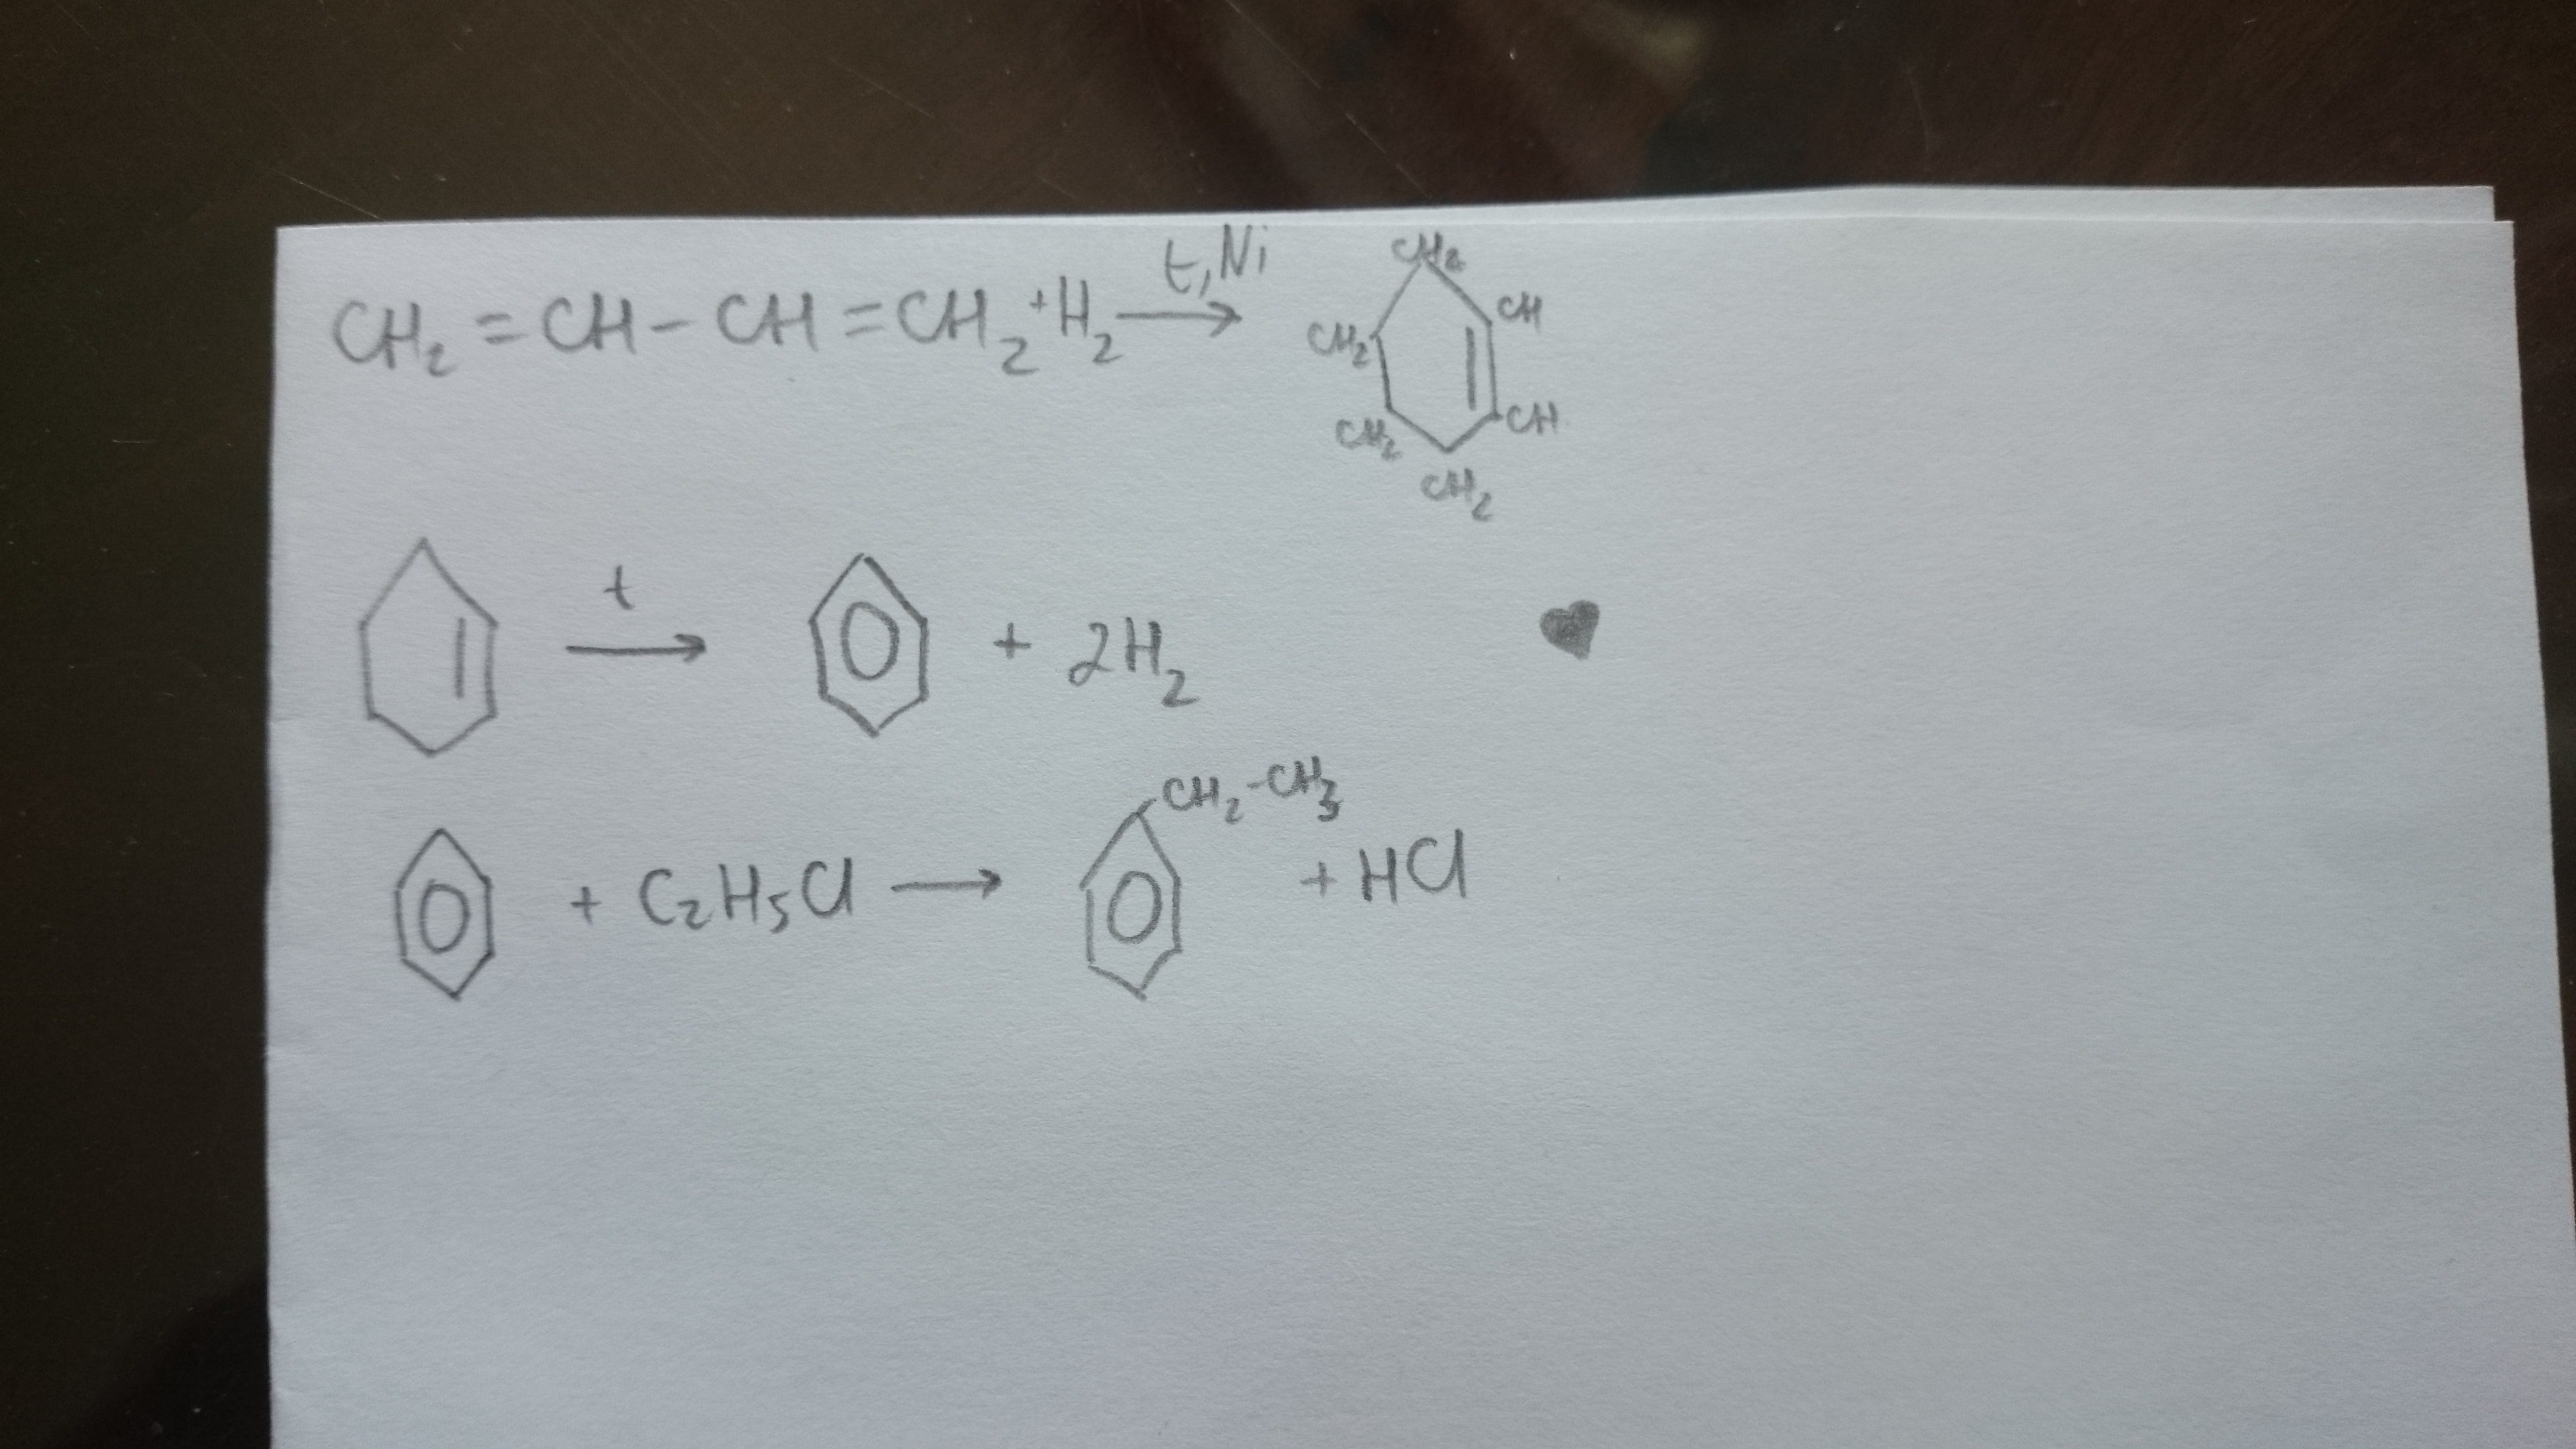 CH2 = CH - CH = CH2 + H2 → t, Ni CH2 CH CH CH2 CH2 CH2
t → + 2H2
+ C2H5Cl → CH2-CH3 + HCl